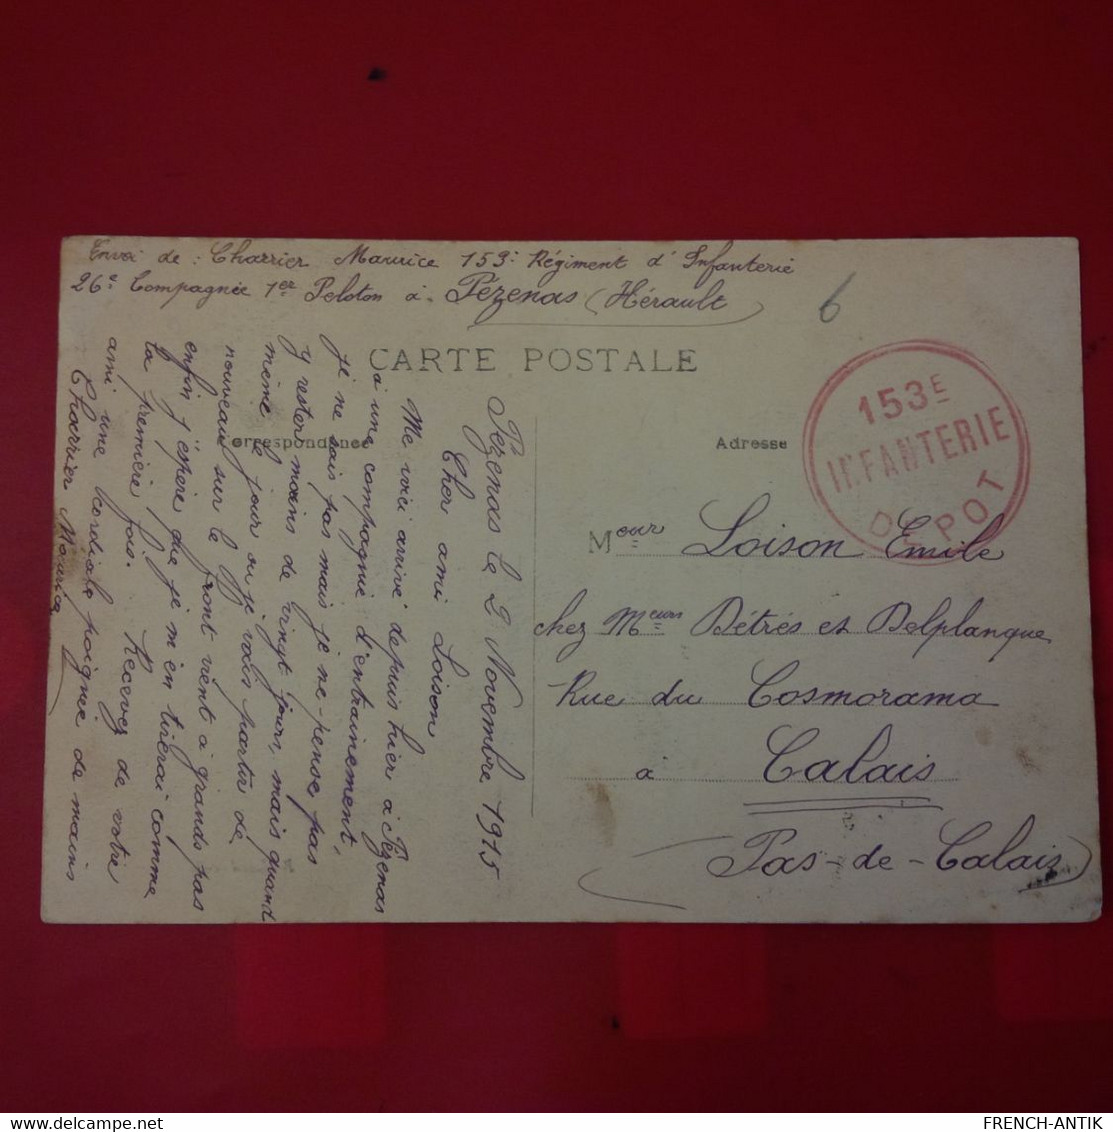 Envoi de : Charrier Maurice 153e Régiment d'Infanterie
26e Compagnie 1er Peloton à Pézenas (Hérault)
6
CARTE POSTALE
Correspondance
Adresse
153E
INFANTERIE
DEPOT
Pézenas le 2 Novembre 1915
Cher ami Loison
Me voici arrivé depuis hier à Pézenas
à une compagnie d'entrainement,
je ne sais pas mais je ne pense pas
y rester moins de vingt jours, mais quand
même le jour ou je vais partir de
nouveau sur le front vient à grands pas
enfin j'éspère que je m'en tirerai comme
la première fois. Recevez de votre
ami une cordiale poignée de mains
Charrier Maurice
Meur Loison Emile
chez Meurs Bétrés et Delplanque
Rue du Cosmorama
à Calais
(Pas-de-Calais)
FRENCH-ANTIK